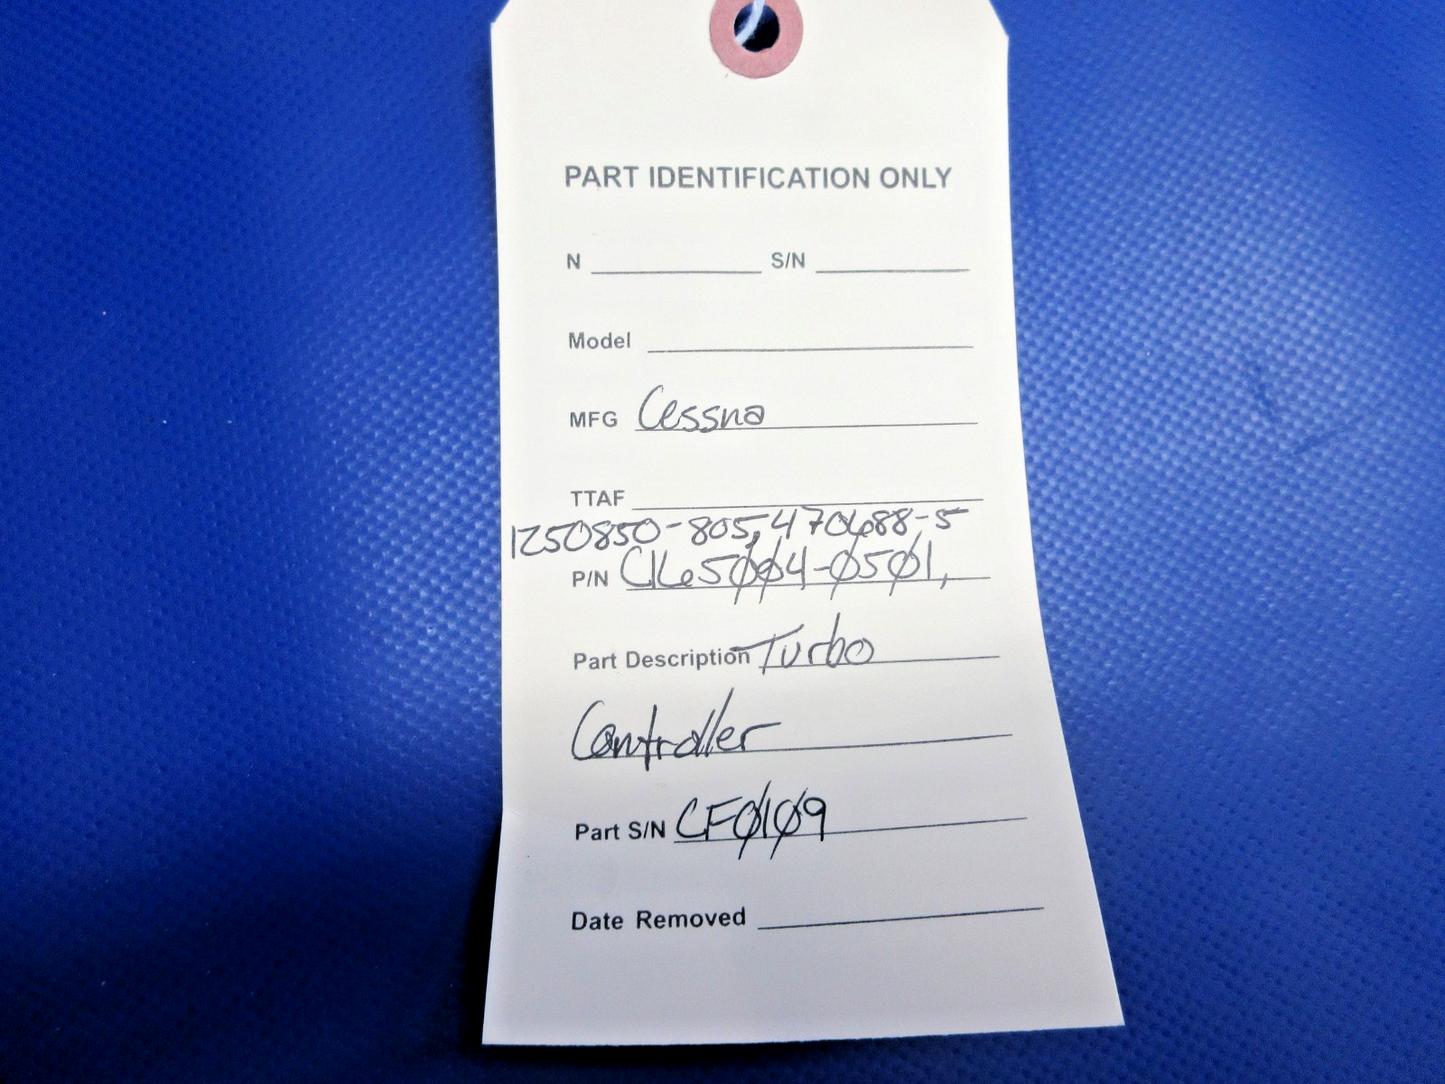 PART IDENTIFICATION ONLY
N S/N
Model
MFG Cessna
TTAF
1250850-805, 470688-5
P/N C165004-0501,
Part Description Turbo
Controller
Part S/N CF0109
Date Removed